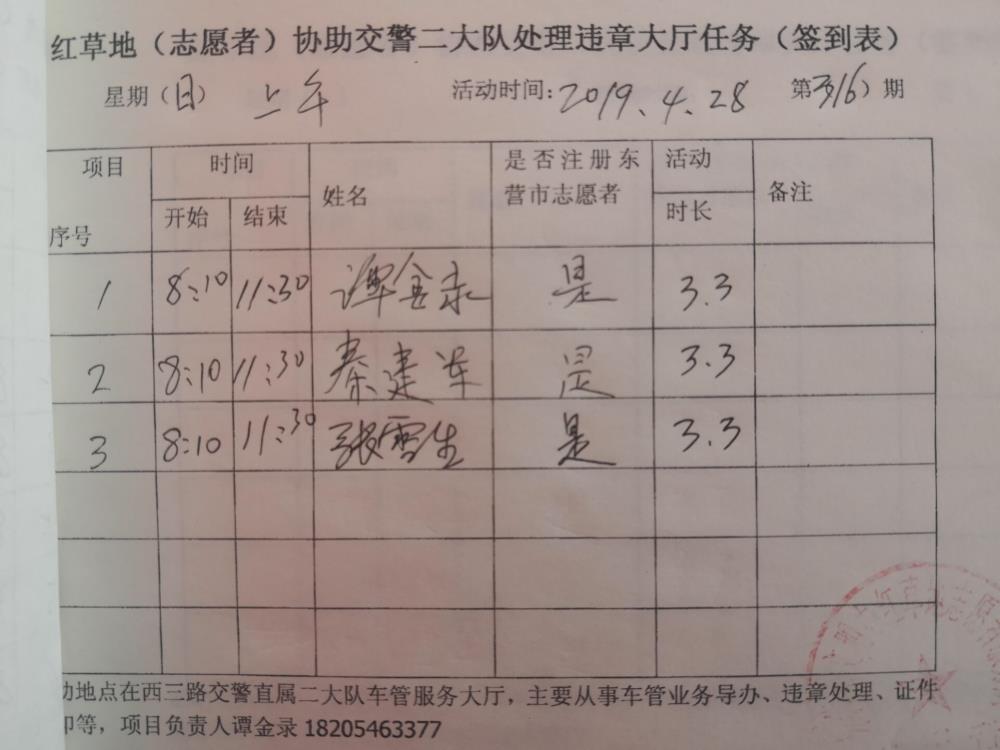 红草地（志愿者）协助交警二大队处理违章大厅任务（签到表）
星期（日） 上午 活动时间：2019.4.28 第316）期
项目 时间 姓名 是否注册东 活动 备注
营市志愿者
序号 开始 结束 时长
1 8:10 11:30 谭金录 是 3.3
2 8:10 11:30 秦建军 是 3.3
3 8:10 11:30 张雪生 是 3.3
动地点在西三路交警直属二大队车管服务大厅，主要从事车管业务导办、违章处理、证件
印等，项目负责人谭金录 18205463377